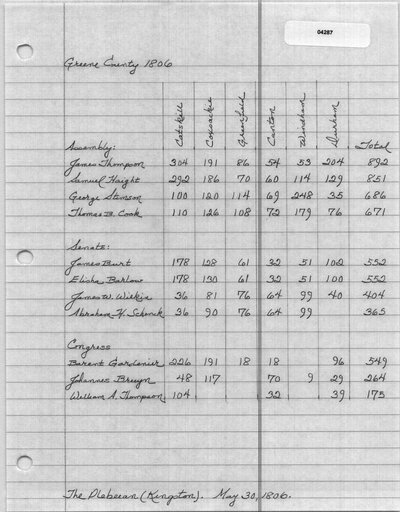 04287
Greene County 1806
Catskill Coxsackie Greenfield Canton Windham Durham
Assembly: Total
James Thompson 304 191 86 54 53 204 892
Samuel Haight 292 186 70 60 114 129 851
George Stimson 100 120 114 69 248 35 686
Thomas B. Cook 110 126 108 72 179 76 671
Senate:
James Burt 178 128 61 32 51 102 552
Elisha Barlow 178 130 61 32 51 100 552
James W. Wilkin 36 81 76 64 99 40 404
Abraham H. Schenck 36 90 76 64 99 365
Congress
Barent Gardenier 226 191 18 18 96 549
Johannes Bruyn 48 117 70 9 29 264
William A. Thompson 104 32 39 175
The Plebeian (Kingston). May 30, 1806.